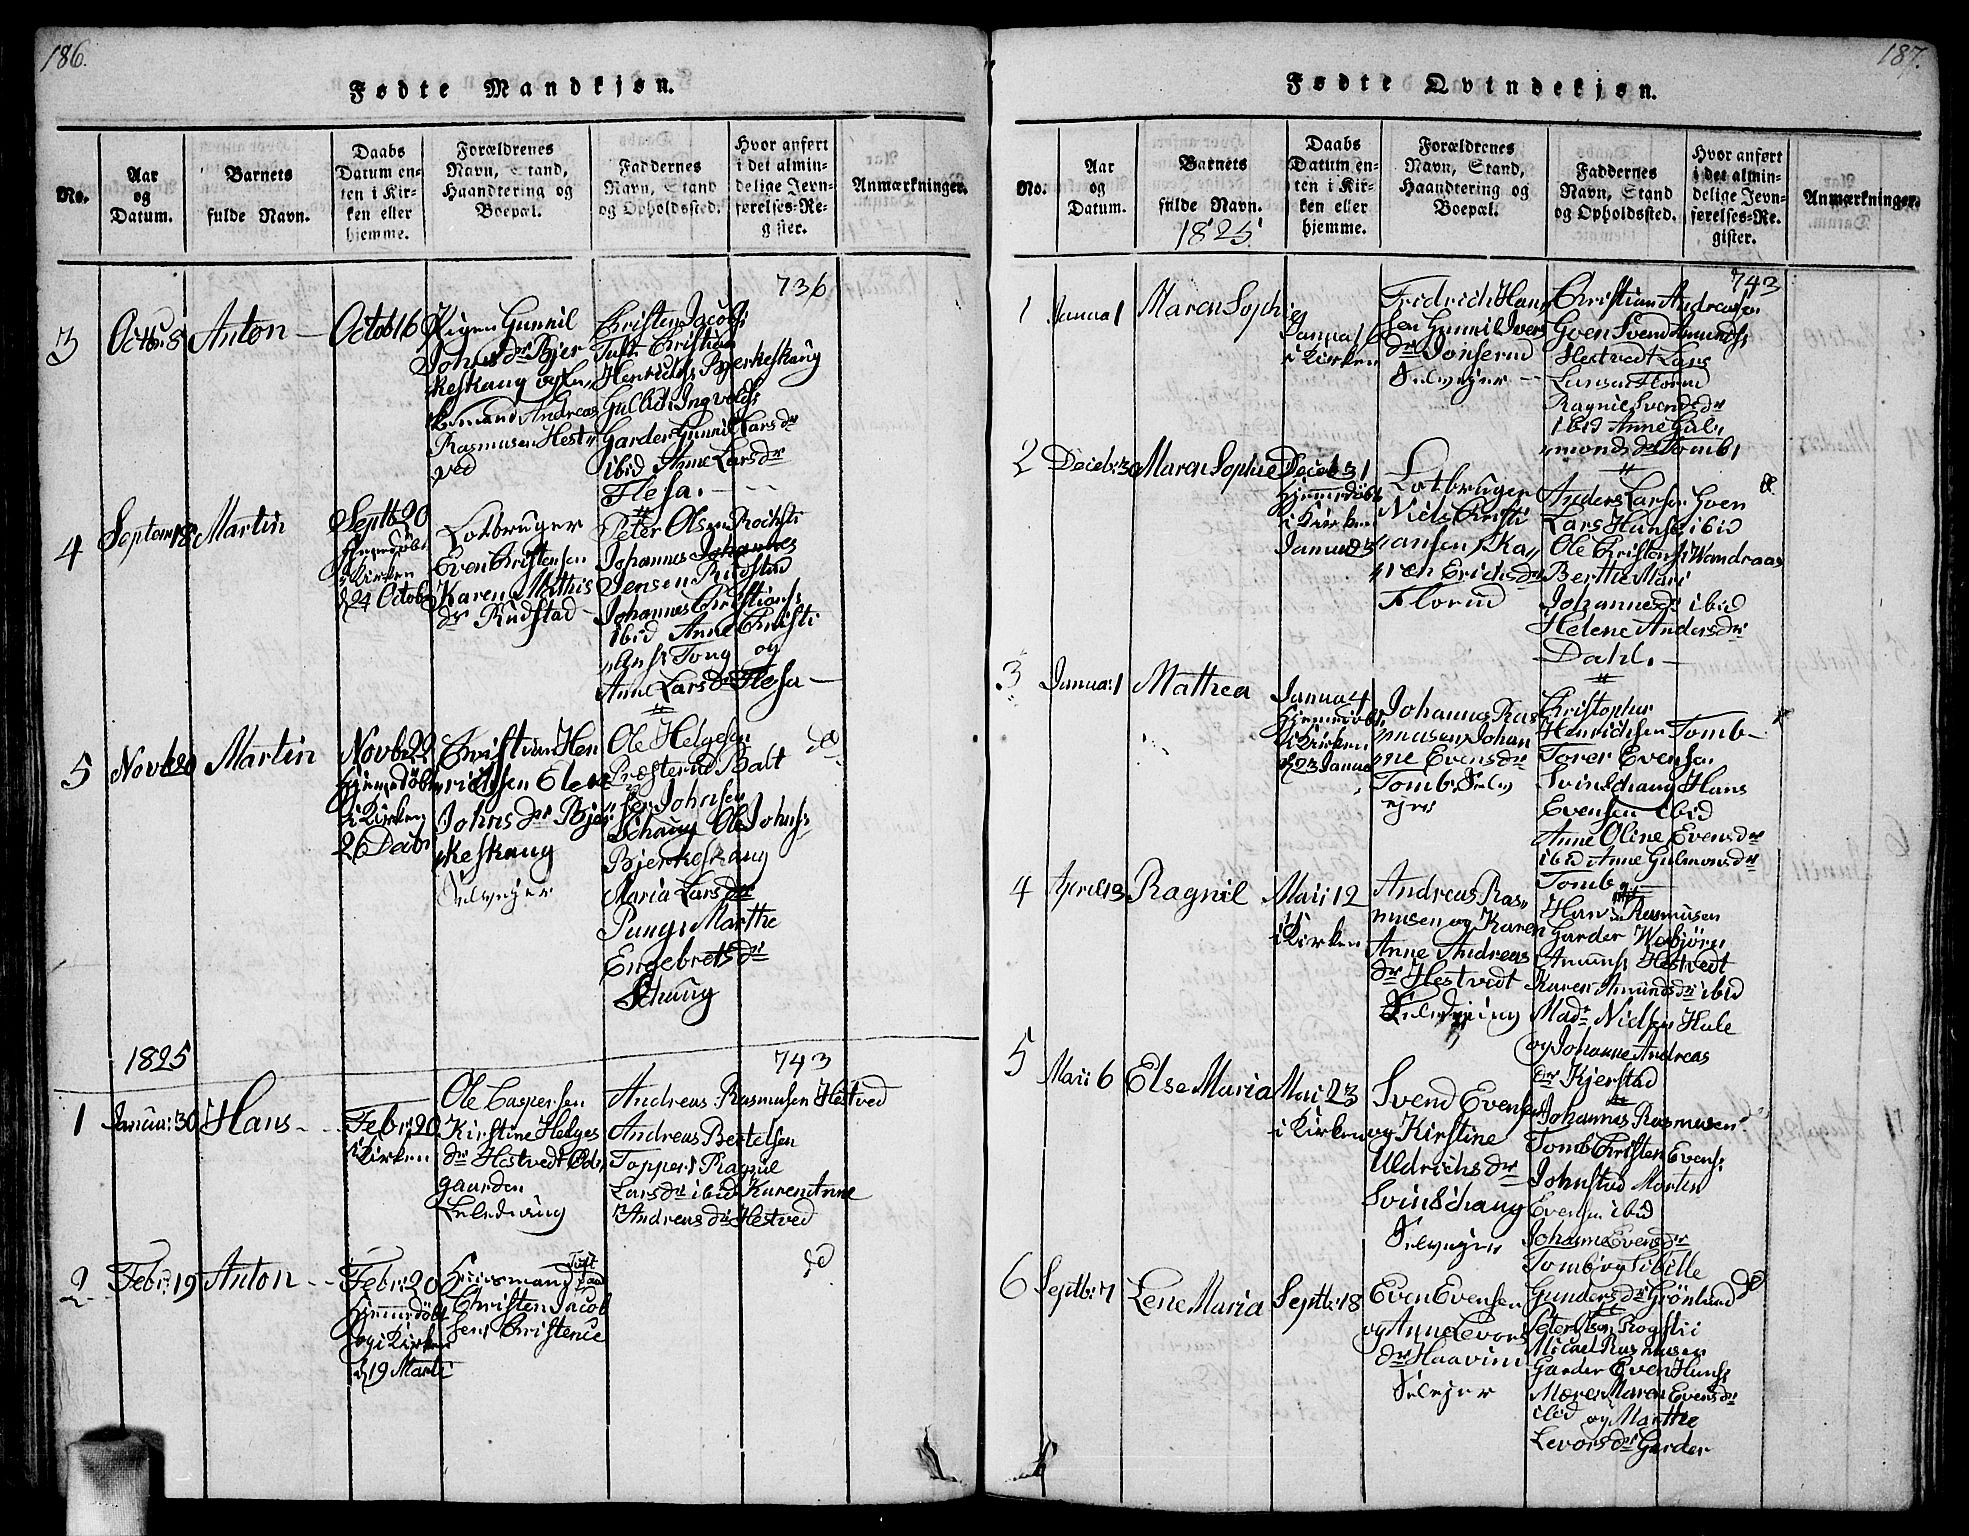 186.
Fødte Mandkjøn.
No.
Aar
og
Datum.
Barnets
fulde Navn.
Daabs
Datum en-
ten i Kir-
ken eller
hjemme.
Forældrenes
Navn, Stand,
Haandtering og
Boepæl.
Faddernes
Navn, Stand
og Opholdssted.
Hvor anført
i det almin-
delige Jevn-
førelses-Re-
gister.
Anmærkninger.
736
3
Octbr: 8
Anton
Octob 16
Pigen Gunnil
Johns dr Bjer
keskaug og
Andreas
Rasmusen Hest„
ved
Christen Jacobs:
Tuft Christian
Henrichs: Bjerkeskaug
Gulbr: Ingvolds:
Garder Gunnil Lars dr
ibid Anne Lars dr
Flesa.
4
Septem 18
Martin
Septb 20
Hjemdöbt
i Kirken
d 24 Octob
Lotbruger
Even Christensen
Karen Mathis
dr Rudstad
Peter Olsen
Johannes Johannes
Jensen Rudstad
Johannes Christians:
ibid Anne Christi
„ans: Tong og
Anne Lars dr Flesa
5
Novb 20
Martin
Novb 22
Hjemdöbt
i Kirken
26 Decb
Christian Hen
richsen Elen
Johns dr Bjer
„keskaug
Selvejer
Ole Helgesen
Præsterud Balt
„ser Johnsen
Schaug Ole Johns:
Bjerkeskaug
Maria Lars dr
Pung: Marthe
Engebrets dr
Schaug
do
1825
743
1
Janua: 30
Hans
Febr: 20
i Kirken
Ole Caspersen
Kirstine Helges
dr Hestvedt Øde
gaarden
Andreas Rasmusen Hestved
Andreas Bertelsen
Topper: Ragnil
Lars dr ibid Karen Anne
Andreas dr Hestved
2
Febr: 19
Anton
Febr: 20
Hjemmedöbt
og i Kirken
d 19 Marti
Tuft
Christen Jacob
sen, Christence
do
187.
Fødte Qvindekjøn.
No.
Aar
og
Datum.
Barnets
fulde Navn.
1825
Daabs
Datum en-
ten i Kir-
ken eller
hjemme.
Forældrenes
Navn, Stand,
Haandtering og
Boepæl.
Faddernes
Navn, Stand
og Opholdssted.
Hvor anført
i det almin-
delige Jevn-
førelses-Re-
gister.
Anmærkninger.
743
1
Janua 1
Maren Sophie
Janua 16
i Kirken
Fridrich Han„
sen Gunnil Ivers
dr Jonserud
Selvejer
Christian Andreasen
Goen Svend Amunds:
Hestvedt Lars
Larsen Florud
Ragnil Svends dr
ibid Anne Gul„
„monds dr Tomb
2
Decbr: 30
Maren Sophie
Decbr 31
Hjemmedöbt
i Kirken
Janua
Lotbruger
Niels Christi
„ansen, Ka„
„ren Erichs dr
Florud
Anders Larsen Goen
Lars Hansen ibid
Ole Christens: Wandraas
Berthe Mari
Johannes dr ibid
Helene Anders dr
Dahl.
do
3
Janua: 1
Mathea
Janua 4
Hjemmedöbt
i Kirken
d 23 Janua
Johannes Ras
musen, Johan
„ne Evens dr
Tomb: Selv
ejer
Christopher
Henrichsen Tomb
Torer Evensen
Svinschaug Hans
Evensen ibid
Anne Oline Evens dr
ibid Anne Gulmons dr
Tomb
4
April 13
Ragnil
Maii 12
i Kirken
Andreas Ras„
musen og Karen
Anne Andreas
dr Hestvedt
Hans Rasmusen
Garder Webjörn
Amunds: Hestvedt
Karen Amunds dr ibid
Mad: Nielsen Hule
og Johanne Andreas
dr Kjerstad
5
Maii 6
Else Maria
Mai 23
i Kirken
Svend Evensen
og Kirstine
Uldrichs dr
Svinschaug
Selvejer
Johannes Rasmusen
Tomb Christen Evens:
Johnstad Morten
Evensen ibid
Johanne Evens dr
Tomb og Sibille
Gunders dr Grönlund
6
Septb: 7
Lene Maria
Septb: 18
Even Evensen
og Anne Levors
dr Haavim
Selvejer
do
Peter Olsen Rogstii
Micael Rasmusen
Garder Even Hans:
Moere Maren Evens dr
ibid og Marthe
Levors dr Garder